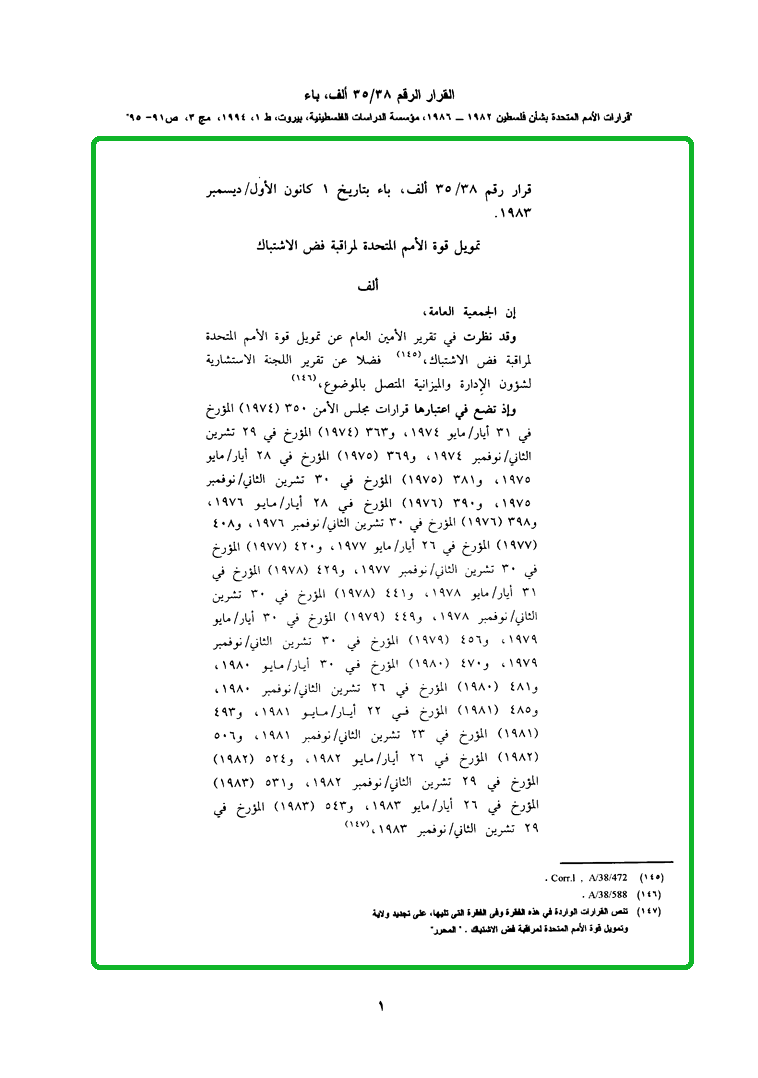 القرار الرقم ٣٥/٣٨ ألف، باء
"قرارات الأمم المتحدة بشأن فلسطين ١٩٨٢ ــ ١٩٨٦، مؤسسة الدراسات الفلسطينية، بيروت، ط ١، ١٩٩٤، مج ٣، ص٩١- ٩٥"
قرار رقم ٣٥/٣٨ ألف، باء بتاريخ ١ كانون الأول/ديسمبر
١٩٨٣.
تمويل قوة الأمم المتحدة لمراقبة فض الاشتباك
ألف
إن الجمعية العامة،
وقد نظرت في تقرير الأمين العام عن تمويل قوة الأمم المتحدة
لمراقبة فض الاشتباك،(١٤٥) فضلا عن تقرير اللجنة الاستشارية
لشؤون الإدارة والميزانية المتصل بالموضوع،(١٤٦)
وإذ تضع في اعتبارها قرارات مجلس الأمن ٣٥٠ (١٩٧٤) المؤرخ
في ٣١ أيار/مايو ١٩٧٤، و٣٦٣ (١٩٧٤) المؤرخ في ٢٩ تشرين
الثاني/نوفمبر ١٩٧٤، و٣٦٩ (١٩٧٥) المؤرخ في ٢٨ أيار/مايو
١٩٧٥، و٣٨١ (١٩٧٥) المؤرخ في ٣٠ تشرين الثاني/نوفمبر
١٩٧٥، و٣٩٠ (١٩٧٦) المؤرخ في ٢٨ أيار/مايو ١٩٧٦،
و٣٩٨ (١٩٧٦) المؤرخ في ٣٠ تشرين الثاني/نوفمبر ١٩٧٦، و٤٠٨
(١٩٧٧) المؤرخ في ٢٦ أيار/مايو ١٩٧٧، و٤٢٠ (١٩٧٧) المؤرخ
في ٣٠ تشرين الثاني/نوفمبر ١٩٧٧، و٤٢٩ (١٩٧٨) المؤرخ في
٣١ أيار/مايو ١٩٧٨، و٤٤١ (١٩٧٨) المؤرخ في ٣٠ تشرين
الثاني/نوفمبر ١٩٧٨، و٤٤٩ (١٩٧٩) المؤرخ في ٣٠ أيار/مايو
١٩٧٩، و٤٥٦ (١٩٧٩) المؤرخ في ٣٠ تشرين الثاني/نوفمبر
١٩٧٩، و٤٧٠ (١٩٨٠) المؤرخ في ٣٠ أيار/مايو ١٩٨٠،
و٤٨١ (١٩٨٠) المؤرخ في ٢٦ تشرين الثاني/نوفمبر ١٩٨٠،
و٤٨٥ (١٩٨١) المؤرخ في ٢٢ أيار/مايو ١٩٨١، و٤٩٣
(١٩٨١) المؤرخ في ٢٣ تشرين الثاني/نوفمبر ١٩٨١، و٥٠٦
(١٩٨٢) المؤرخ في ٢٦ أيار/مايو ١٩٨٢، و٥٢٤ (١٩٨٢)
المؤرخ في ٢٩ تشرين الثاني/نوفمبر ١٩٨٢، و٥٣١ (١٩٨٣)
المؤرخ في ٢٦ أيار/مايو ١٩٨٣، و٥٤٣ (١٩٨٣) المؤرخ في
٢٩ تشرين الثاني/نوفمبر ١٩٨٣،(١٤٧)
(١٤٥) A/38/472 , Corr.١ .
(١٤٦) A/38/588 .
(١٤٧) تنص القرارات الواردة في هذه الفقرة وفى الفقرة التى تليها، على تجديد ولاية
وتمويل قوة الأمم المتحدة لمراقبة فض الاشتباك . " المحرر"
١